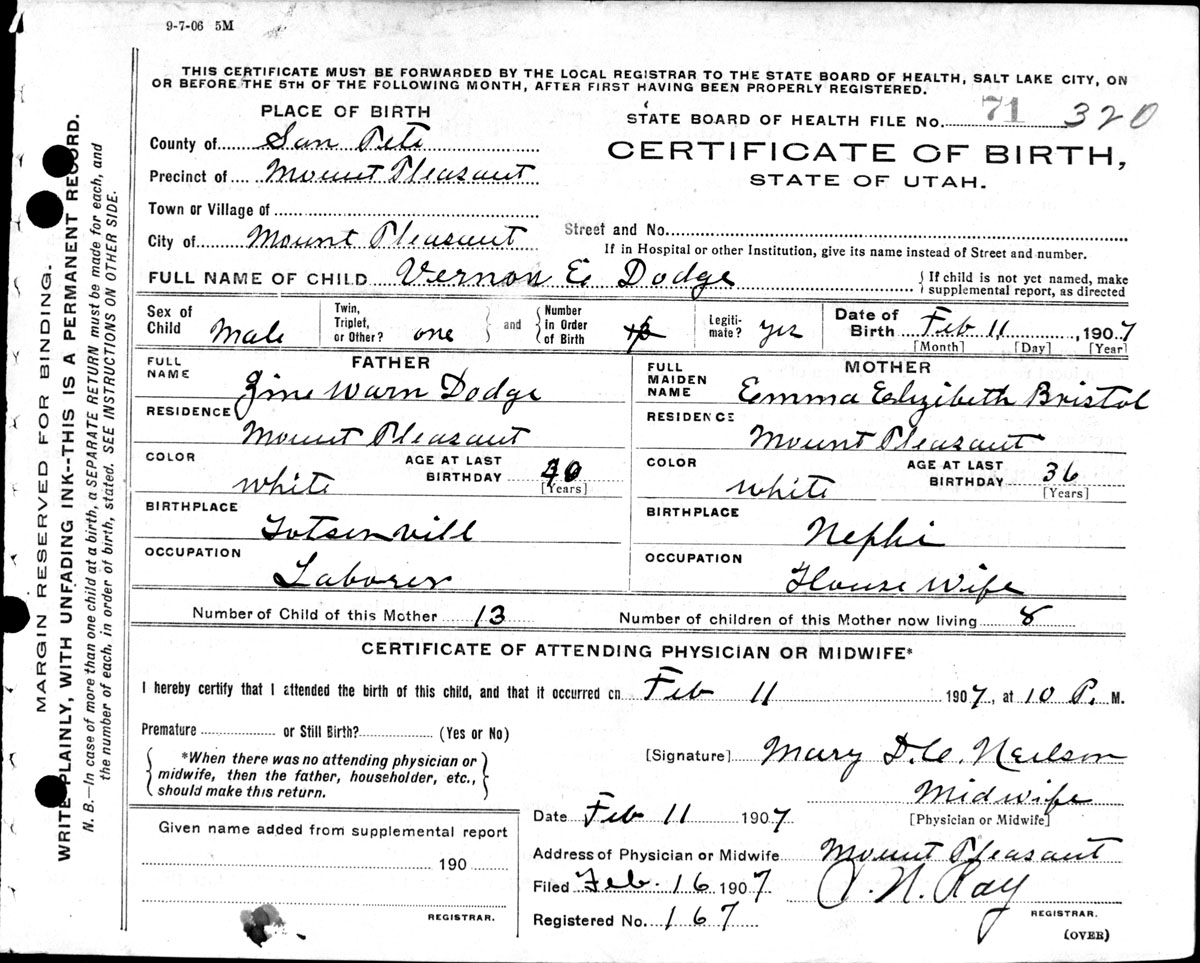 9-7-06 5M
THIS CERTIFICATE MUST BE FORWARDED BY THE LOCAL REGISTRAR TO THE STATE BOARD OF HEALTH, SALT LAKE CITY, ON
OR BEFORE THE 5TH OF THE FOLLOWING MONTH, AFTER FIRST HAVING BEEN PROPERLY REGISTERED.
PLACE OF BIRTH
County of San Pete
Precinct of Mount Pleasant
Town or Village of
City of Mount Pleasant
STATE BOARD OF HEALTH FILE No. 71 320
CERTIFICATE OF BIRTH,
STATE OF UTAH.
Street and No.
If in Hospital or other Institution, give its name instead of Street and number.
FULL NAME OF CHILD Vernon E Dodge
If child is not yet named, make
supplemental report, as directed
Sex of Child Male
Twin, Triplet, or Other? one
and
Number in Order of Birth
Legiti- mate? yes
Date of Birth Feb 11, 1907
[Month] [Day] [Year]
FATHER
FULL NAME Warn Dodge
RESIDENCE Mount Pleasant
COLOR white
AGE AT LAST BIRTHDAY
[Years]
BIRTHPLACE
OCCUPATION Laborer
MOTHER
FULL MAIDEN NAME Emma Elizibeth Bristol
RESIDENCE Mount Pleasant
COLOR white
AGE AT LAST BIRTHDAY 36
[Years]
BIRTHPLACE Nephi
OCCUPATION House Wife
Number of Child of this Mother 13
Number of children of this Mother now living 8
CERTIFICATE OF ATTENDING PHYSICIAN OR MIDWIFE*
I hereby certify that I attended the birth of this child, and that it occurred on Feb 11 1907, at 10 P. M.
Premature or Still Birth? (Yes or No)
*When there was no attending physician or
midwife, then the father, householder, etc.,
should make this return.
[Signature] Mary D.C. Neilson
Midwife
[Physician or Midwife]
Given name added from supplemental report
190
REGISTRAR.
Date Feb 11 1907
Address of Physician or Midwife Mount Pleasant
Filed Feb. 16 1907
N. Ray
REGISTRAR.
Registered No. 167
(OVER)
MARGIN RESERVED FOR BINDING.
WRITE PLAINLY, WITH UNFADING INK--THIS IS A PERMANENT RECORD.
N. B.—In case of more than one child at a birth, a SEPARATE RETURN must be made for each, and
the number of each, in order of birth, stated. SEE INSTRUCTIONS ON OTHER SIDE.